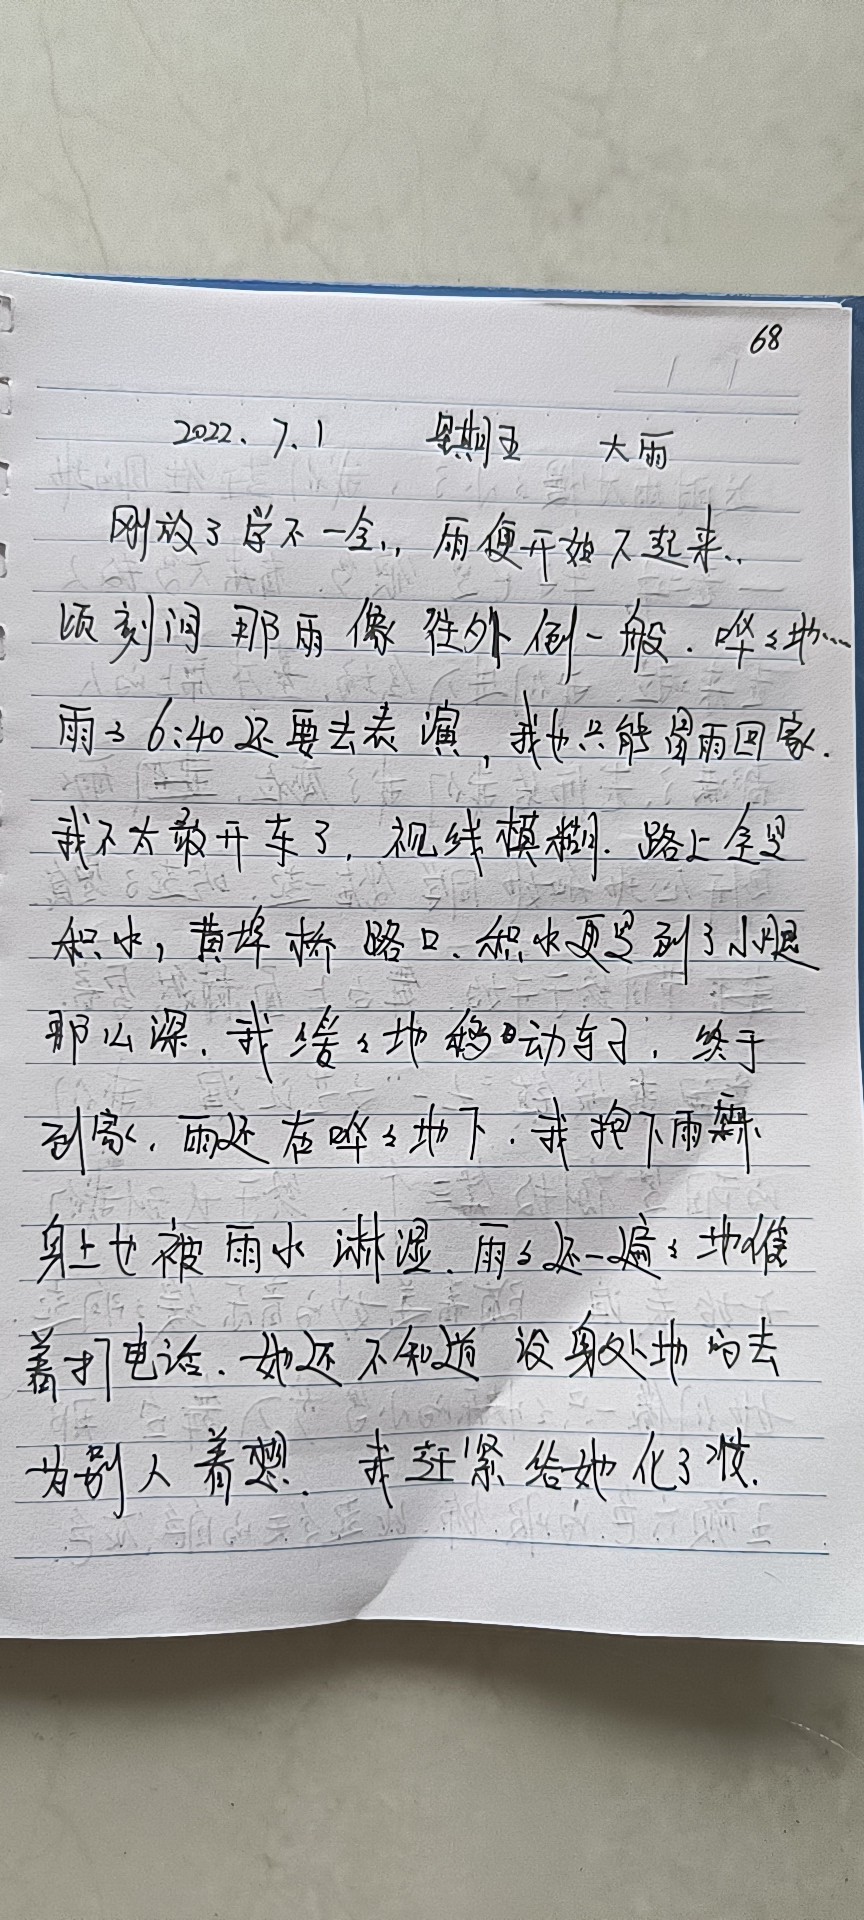 68
2022.7.1 星期五 大雨
刚放了学不一会,雨便开始下起来..
顷刻间 那雨像往外倒一般.哗々地…
雨々6:40还要去表演,我也只能冒雨回家.
我不太敢开车了,视线模糊.路上全是
积水,黄埠桥路口.积水更是到了小腿
那么深.我缓々地移动车子,终于
到家.雨还在哗々地下.我抱下雨霏
身上也被雨水淋湿.雨々还一遍々地催
着打电话.她还不知道设身处地的去
为别人着想.我赶紧给她化了妆.